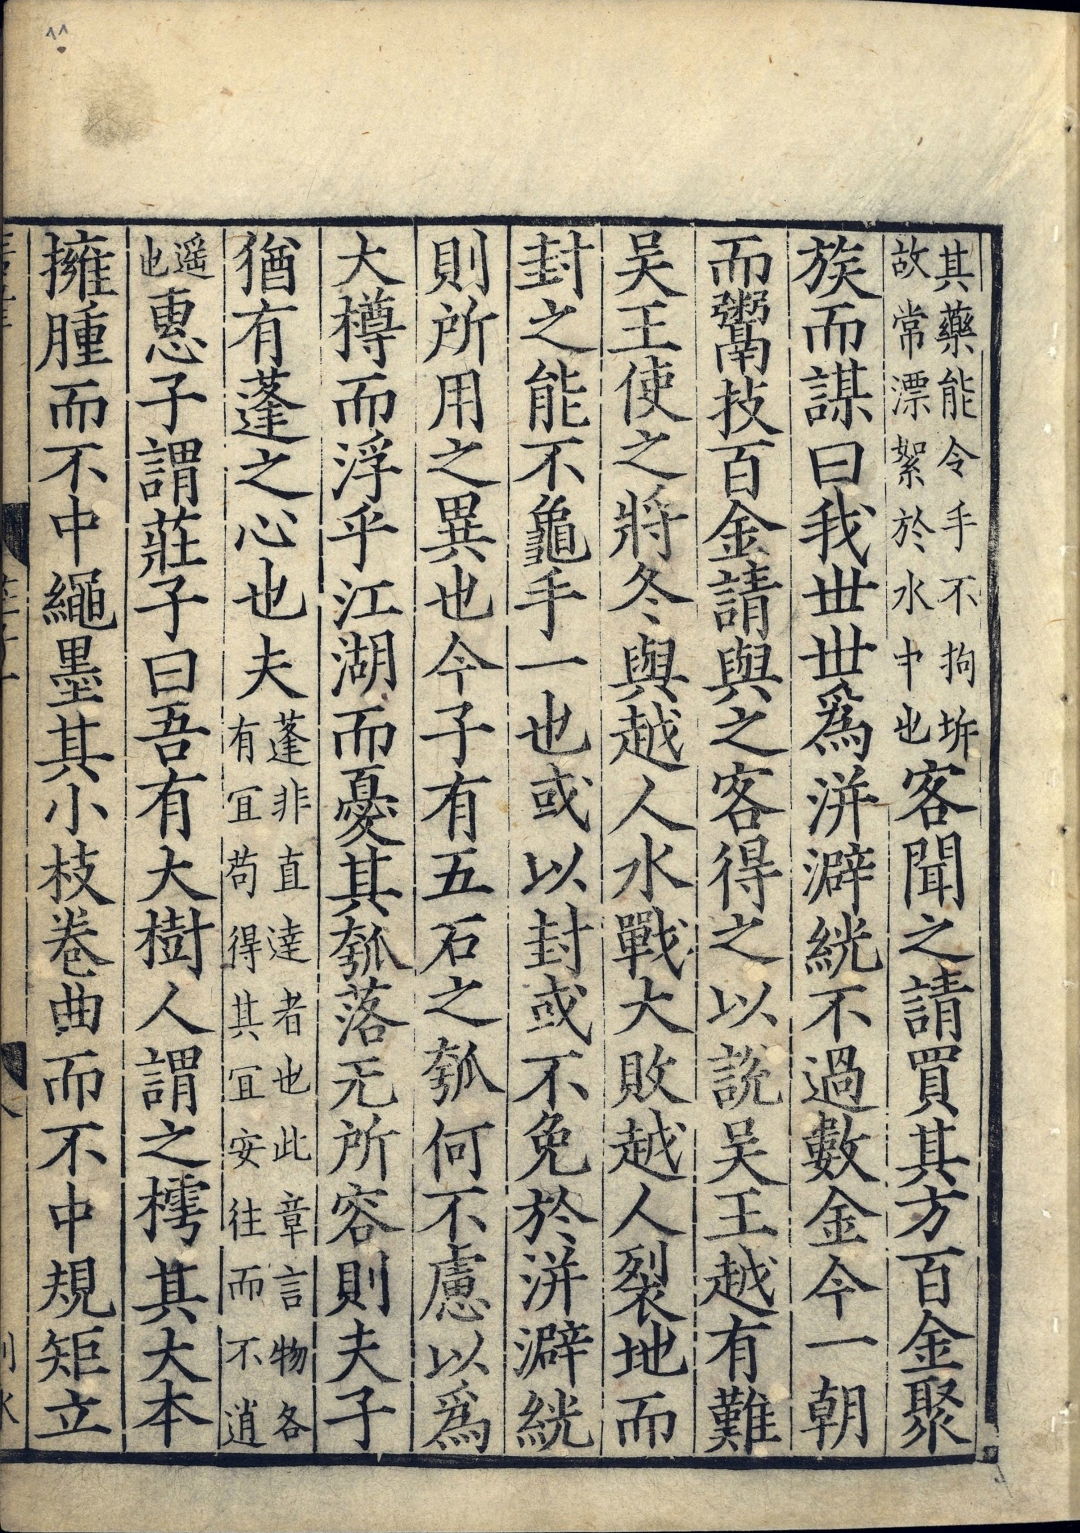 其藥能令手不拘坼故常漂絮於水中也客聞之請買其方百金聚
族而謀曰我丗丗爲洴澼絖不過數金今一朝
而鬻技百金請與之客得之以說吴王越有難
吴王使之將冬與越人水戰大敗越人裂地而
封之能不龜手一也或以封或不免於洴澼絖
則所用之異也今子有五石之瓠何不慮以爲
大樽而浮乎江湖而憂其瓠落无所容則夫子
猶有蓬之心也夫蓬非直逹者也此章言物各有冝苟得其冝安往而不逍
遥也惠子謂莊子曰吾有大樹人謂之樗其大本
擁腫而不中繩墨其小枝卷曲而不中規矩立